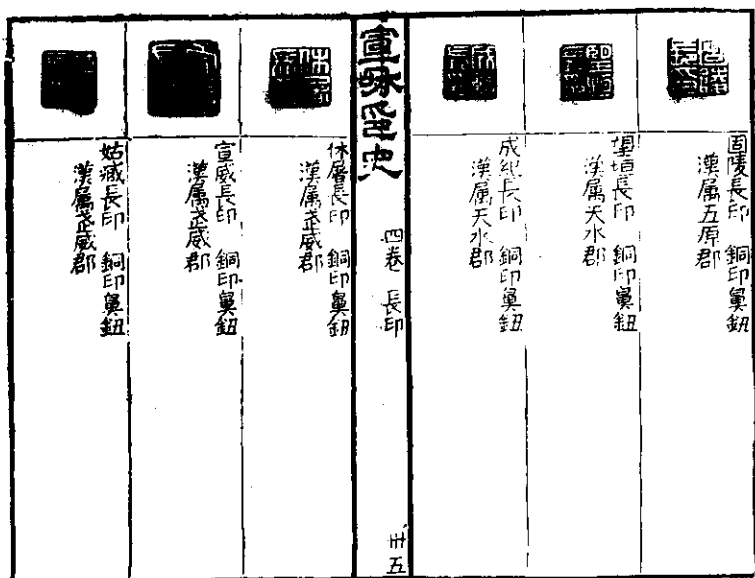 固陵長印 銅印鼻鈕
漢属五原郡
望垣長印 銅印鼻鈕
漢属天水郡
成紀長印 銅印鼻鈕
漢属天水郡
宣和印史
四卷 長印
卅五
休屠長印 銅印鼻鈕
漢属武威郡
宣威長印 銅印鼻鈕
漢属武威郡
姑臧長印 銅印鼻鈕
漢属武威郡